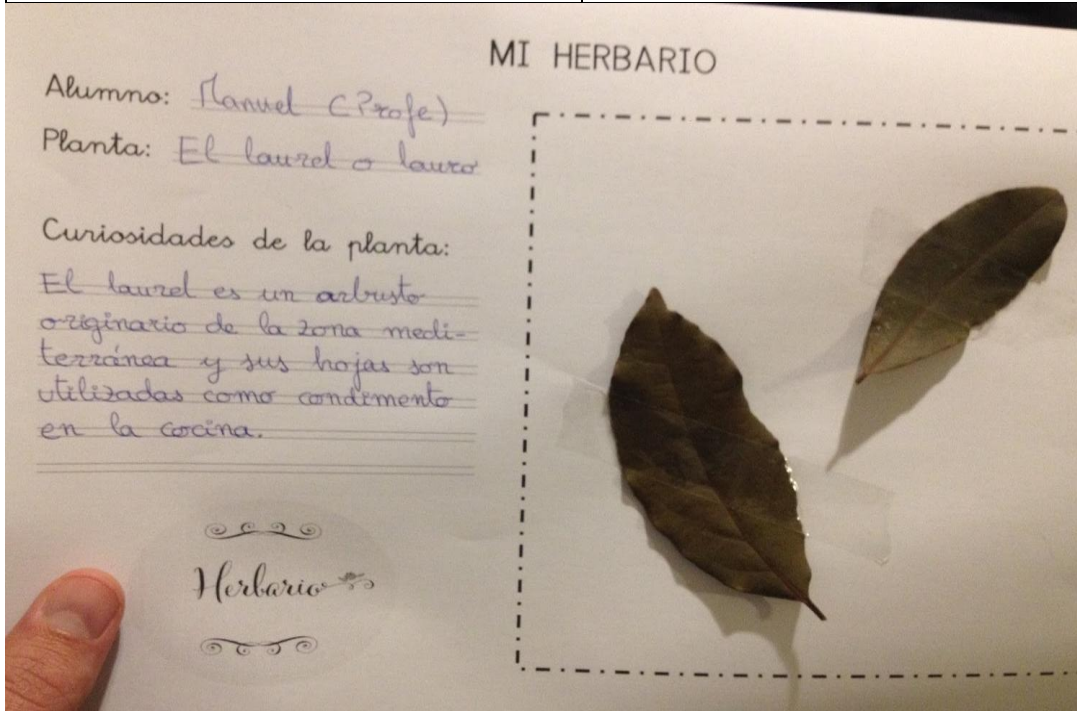 MI HERBARIO
Alumno: Manuel (Profe)
Planta: El laurel o lauro
Curiosidades de la planta:
El laurel es un arbusto
originario de la zona medi-
terránea y sus hojas son
utilizadas como condimento
en la cocina.
Herbario